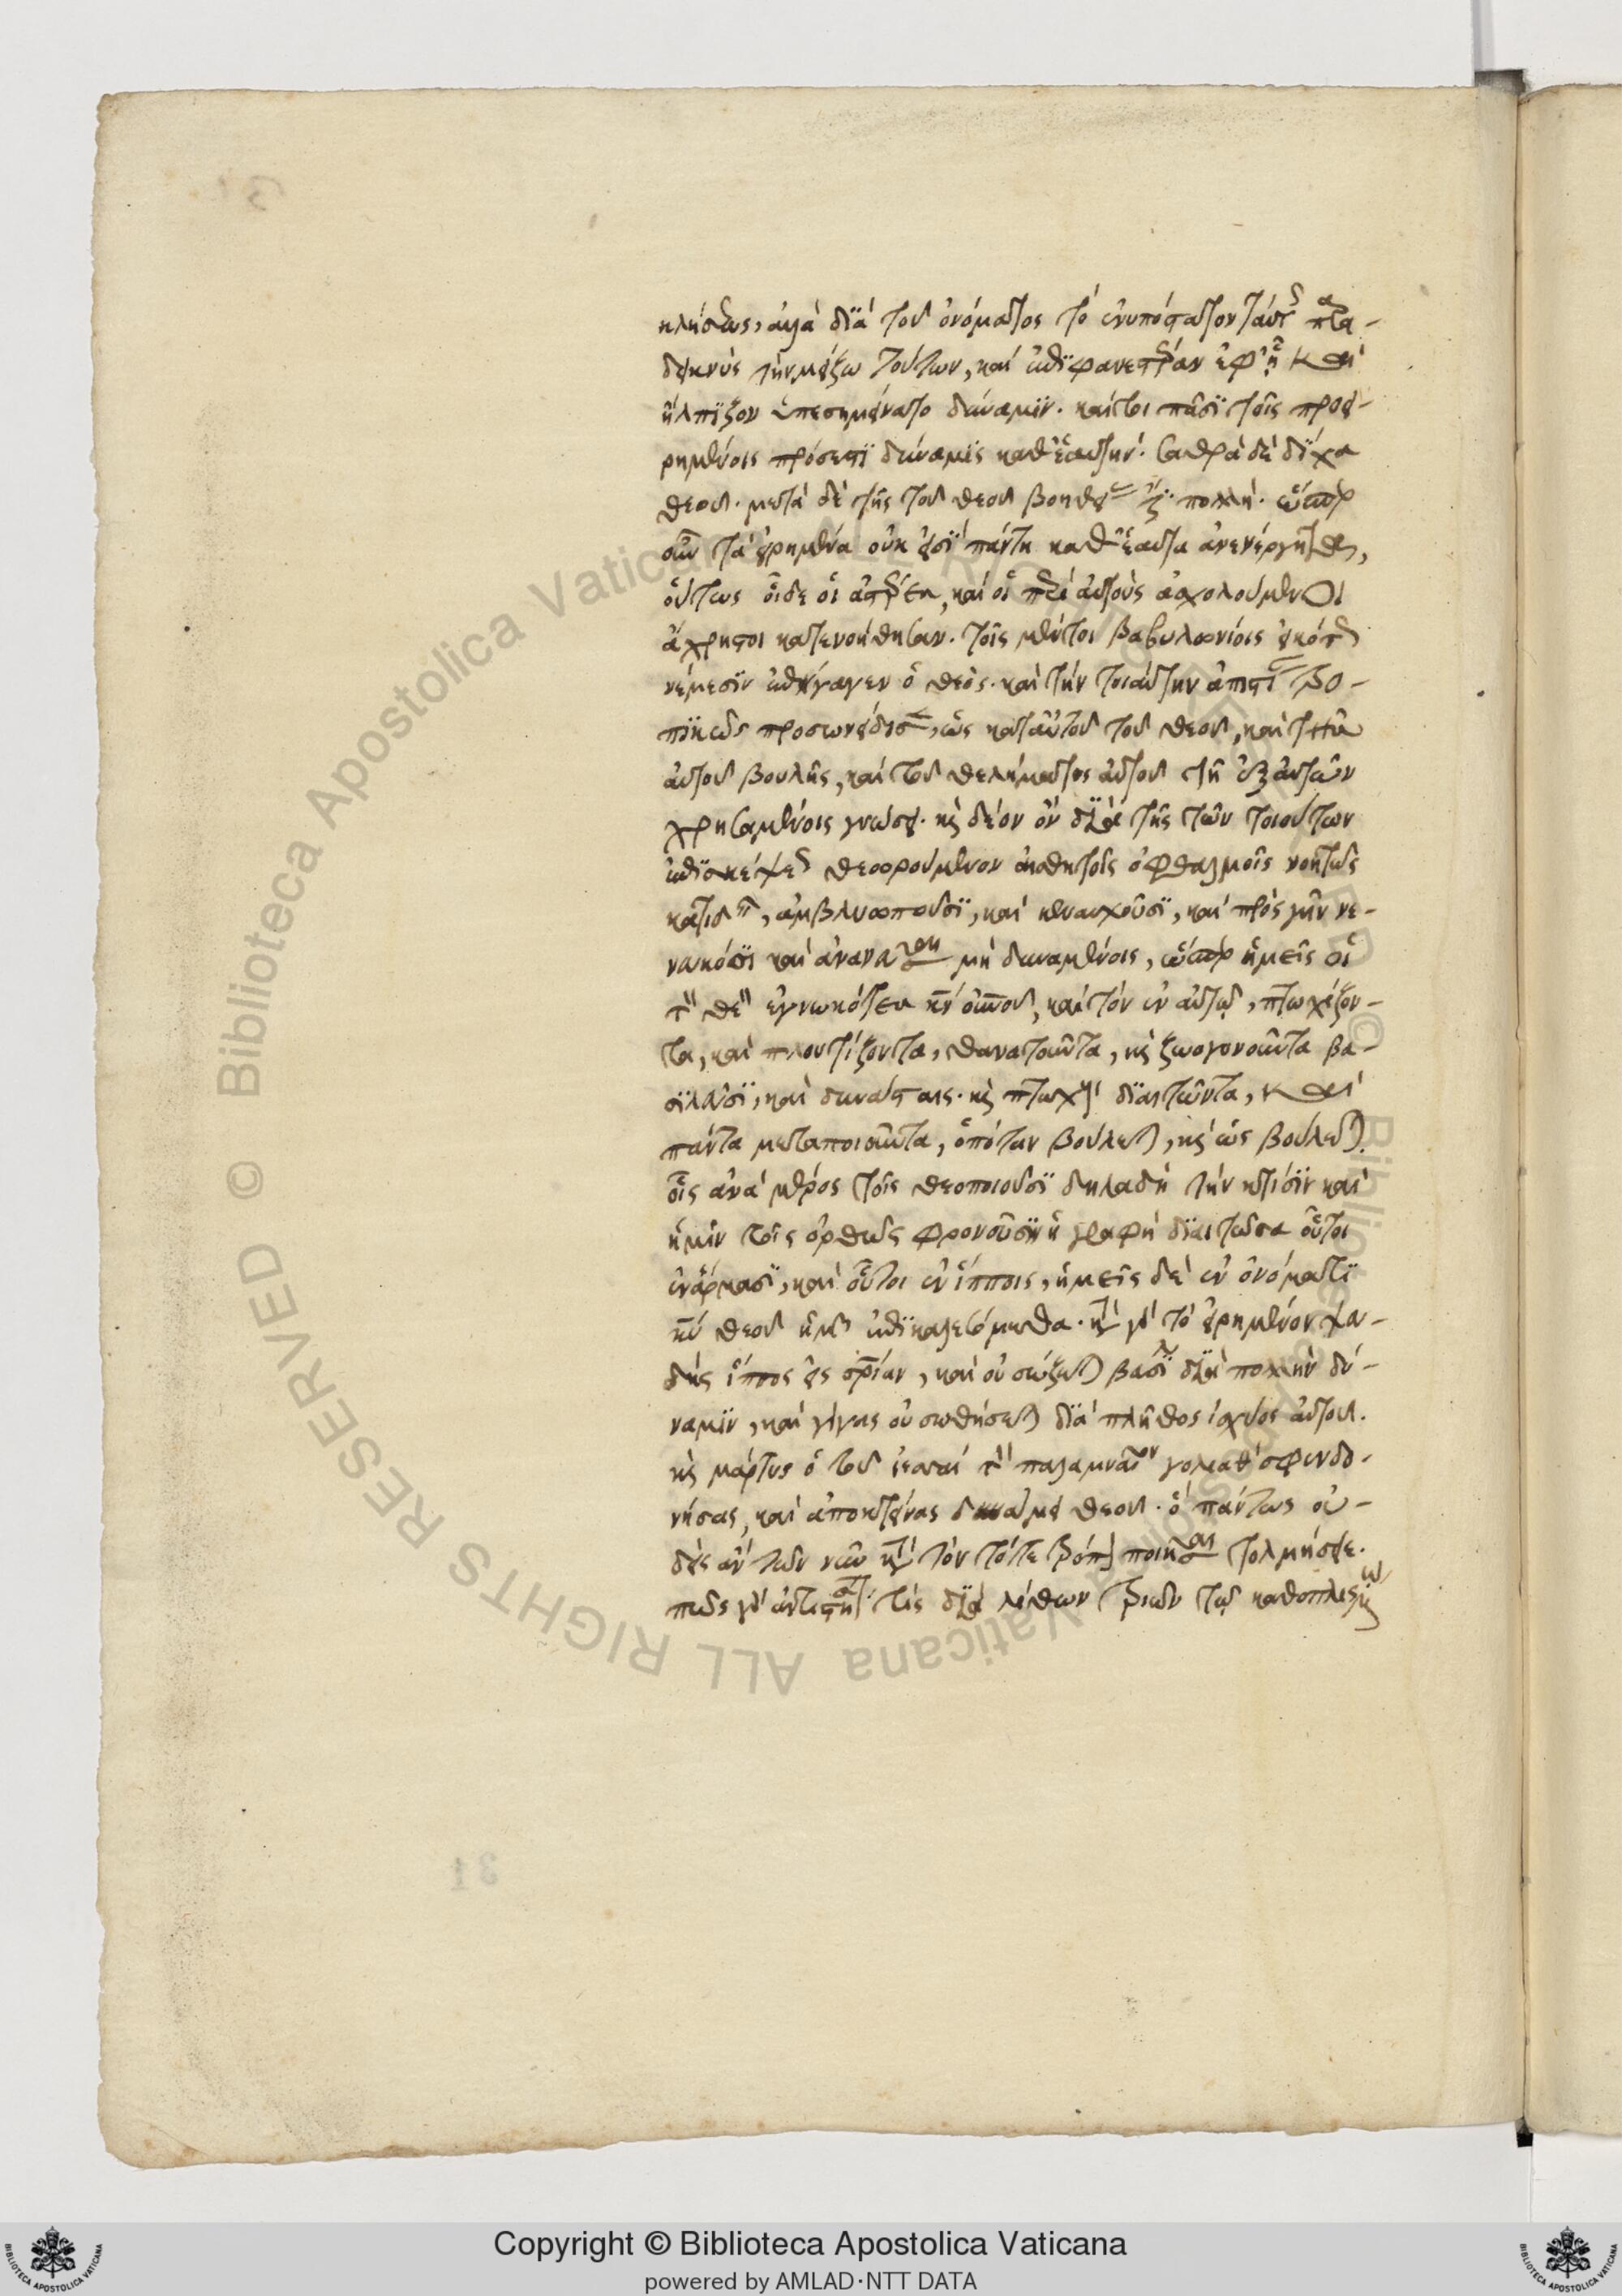 κλήσεως, ἀλλὰ διὰ τοῦ ὀνόματος τὸ ἐνυπόστατον ταύτης παρα-
δεικνὺς τὴν μείζω τούτων, καὶ ἐπιφανεστέραν ἐφ' ᾗ καὶ
ἤλπιζον ἐπεσημήνατο δύναμιν. καίτοι πᾶσι τοῖς προει-
ρημένοις πρόσεστι δύναμις καθ' ἑαυτήν. σαθρὰ δὲ δίχα
θεοῦ. μετὰ δὲ τῆς τοῦ θεοῦ βοηθείας πολλή. ὥσπερ
οὖν τὰ εἰρημένα οὐκ εἰσὶ πάντη καθ' ἑαυτὰ ἀνενέργητα,
οὕτως οἵδε οἱ ἀστέρες, καὶ οἱ περὶ αὐτοὺς ἀσχολούμενοι
ἄχρηστοι κατενοήθησαν. τοῖς μέντοι βαβυλωνίοις εἰκότως
νέμεσιν ἐπήγαγεν ὁ θεός. καὶ τὴν τοιαύτην ἀπιστίαν
προσωνείδισεν, ὡς κατ' αὐτοῦ τοῦ θεοῦ, καὶ τῆς
αὐτοῦ βουλῆς, καὶ τοῦ θελήματος αὐτοῦ τῇ ἐξ αὐτῶν
χρησαμένοις γνώσει. καὶ δέον ὂν διὰ τῆς τῶν τοιούτων
ἐπισκέψεως θεωρούμενον αἰσθητοῖς ὀφθαλμοῖς νοητῶς
κατιδεῖν, ἀμβλυωποῦσι, καὶ πρὸς γῆν νε-
νευκόσι καὶ ἀνανεῦσαι μὴ δυναμένοις, ὥσπερ ἡμεῖς οἱ
τὸν θεὸν ἐγνωκότες κύριον οὐρανοῦ, καὶ τὸν ἐν αὐτῷ, πτωχίζον-
τα, καὶ πλουτίζοντα, θανατοῦντα, καὶ ζωογονοῦντα βα-
σιλεῦσι, καὶ δυνάσταις. καὶ πτωχοῖς διαιτῶντα, καὶ
πάντα μεταποιοῦντα, ὁπόταν βούλεται, καὶ ὡς βούλεται.
οἷς ἀνὰ μέρος τοῖς θεοποιοῦσι δηλαδὴ τὴν κτίσιν καὶ
ἡμῖν τοῖς ὀρθῶς φρονοῦσιν ἡ γραφὴ διαιτῶσα οὗτοι
ἐν ἅρμασι, καὶ οὗτοι ἐν ἵπποις, ἡμεῖς δὲ ἐν ὀνόματι
κυρίου θεοῦ ἡμῶν ἐπικαλεσόμεθα. κατὰ γὰρ τὸ εἰρημένον ψευ-
δὴς ἵππος εἰς σωτηρίαν, καὶ οὐ σώζεται βασιλεὺς διὰ πολλὴν δύ-
ναμιν, καὶ γίγας οὐ σωθήσεται διὰ πλῆθος ἰσχύος αὐτοῦ.
καὶ μάρτυς ὁ τοῦ ἰεσσαὶ τὸν παλαμναῖον γολιαθ σφενδο-
νήσας, καὶ ἀποκτείνας δυνάμει θεοῦ. ὃ πάντως οὐ-
δεὶς ἂν τῶν νῦν κατὰ τὸν τότε τρόπον ποιῆσαι τολμήσειε.
πῶς γὰρ ἀντιστήσεταί τις διὰ λίθων τριῶν τῷ καθωπλισμένῳ